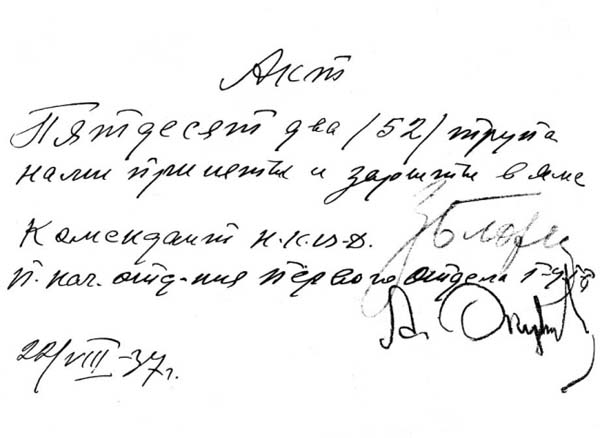 Акт
Пятдесят два /52/ трупа
нами приняты и зарыты в яме
Комендант Н.К.В.Д.
П. нач. отд-ния первого отдела
22/VIII-37г.